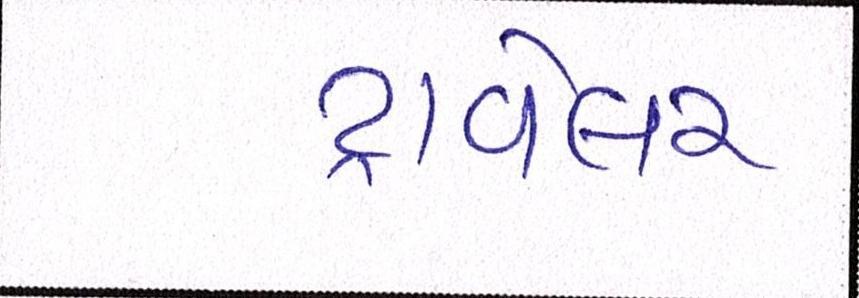 ટ્રાવેલર